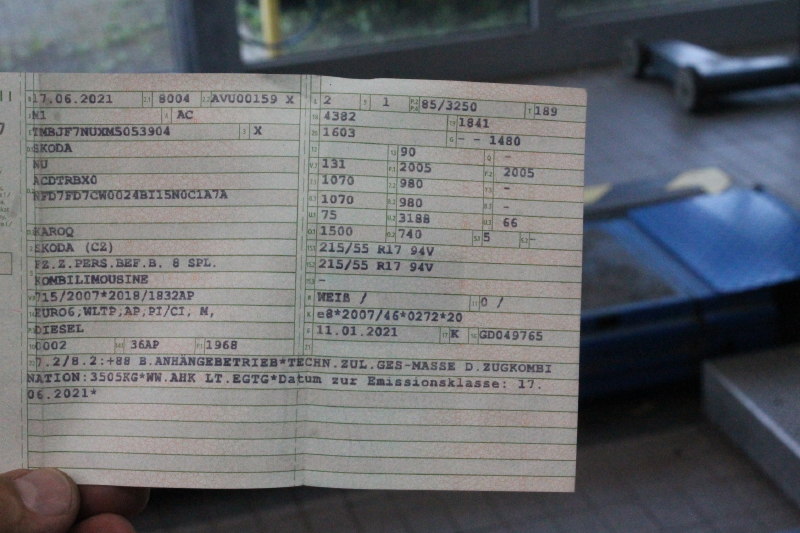 17.06.2021 8004 AVU00159 X
M1 AC
TMBJF7NUXM5053904 X
SKODA
NU
ACDTRBX0
NFD7FD7CW0024BI15N0C1A7A
KAROQ
SKODA (CZ)
FZ.Z.PERS.BEF.B. 8 SPL.
KOMBILIMOUSINE
715/2007*2018/1832AP
EURO6,WLTP,AP,PI/CI, M,
DIESEL
0002 36AP 1968
2 1 85/3250 189
4382 1841
1603 - - 1480
90 -
131 2005 2005
1070 980 -
1070 980 -
75 3188 66
1500 740 5 -
215/55 R17 94V
215/55 R17 94V
-
WEIß / 0 /
e8*2007/46*0272*20
11.01.2021 K GD049765
7.2/8.2:+88 B.ANHÄNGEBETRIEB*TECHN.ZUL.GES-MASSE D.ZUGKOMBI
NATION:3505KG*WW.AHK LT.EGTG*Datum zur Emissionsklasse: 17.
06.2021*